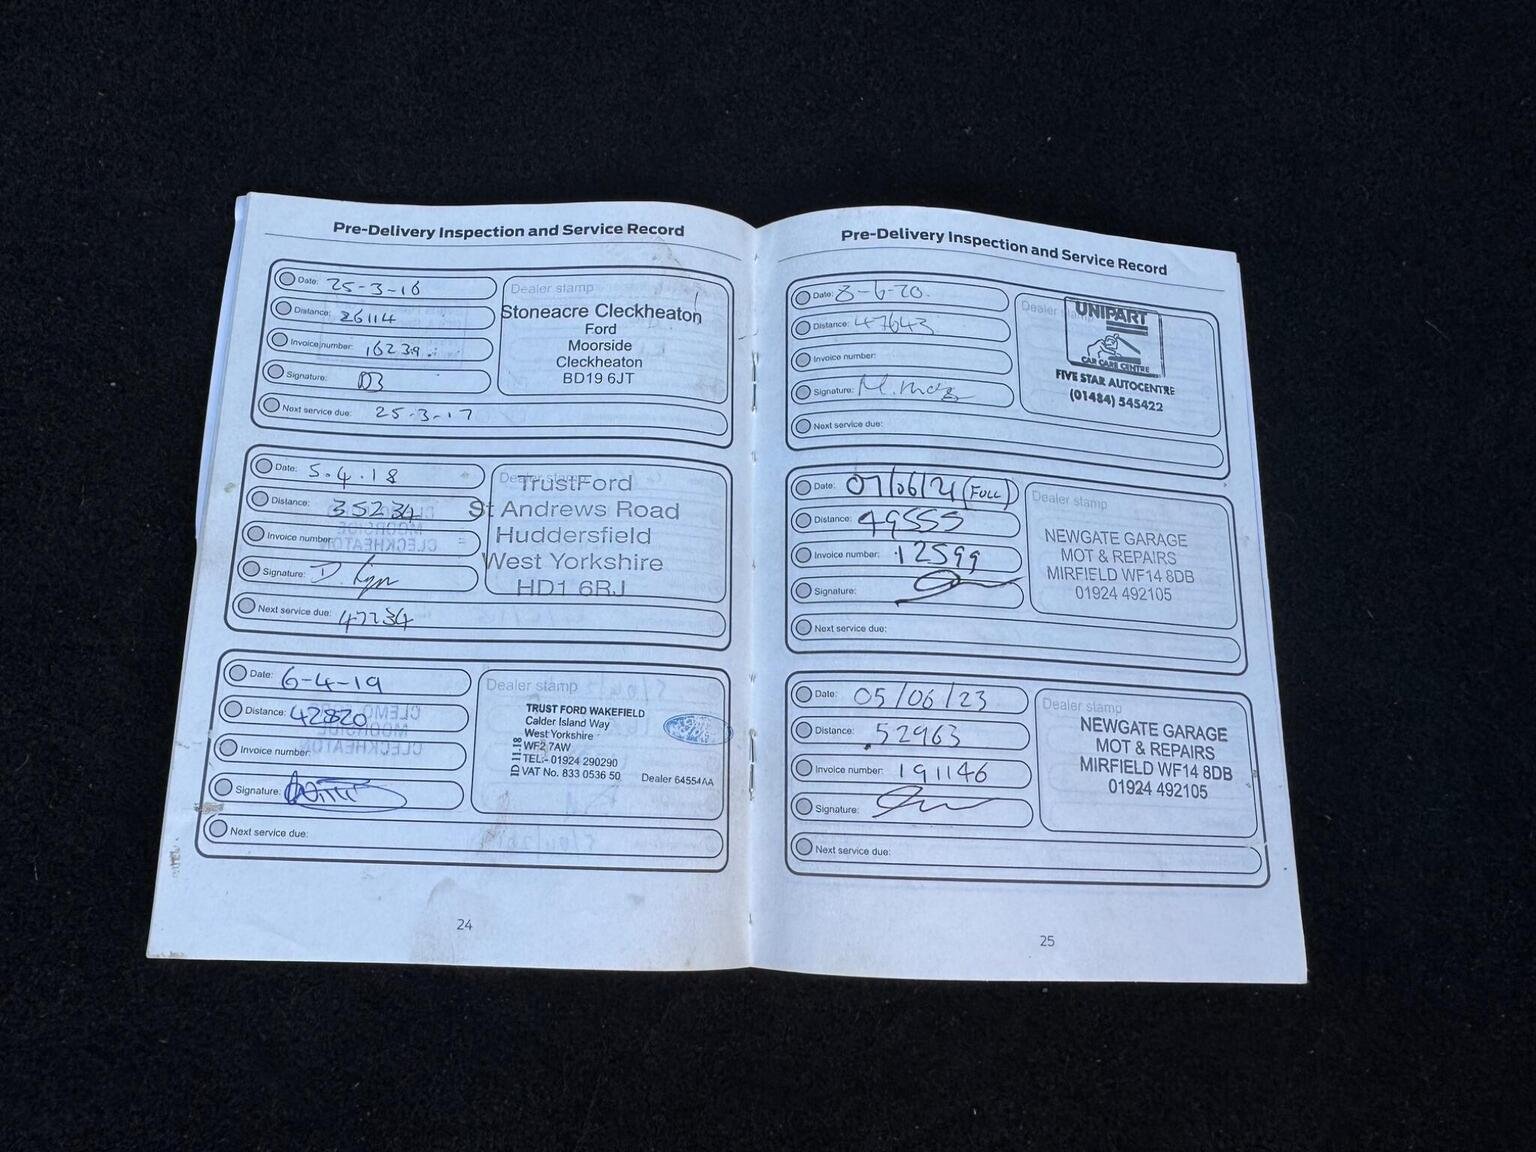 Pre-Delivery Inspection and Service Record
Date: 25-3-16
Distance: 26114
Invoice number: 16239.
Signature: DB
Next service due: 25-3-17
Dealer stamp
Stoneacre Cleckheaton
Ford
Moorside
Cleckheaton
BD19 6JT
Date: 5.4.18
Distance: 35234
Invoice number:
Signature: D.
Next service due: 47234
Dealer stamp
TrustFord
St Andrews Road
Huddersfield
West Yorkshire
HD1 6RJ
Date: 6-4-19
Distance: 42820
Invoice number:
Signature:
Next service due:
Dealer stamp
TRUST FORD WAKEFIELD
Calder Island Way
West Yorkshire
WF2 7AW
TEL:- 01924 290290
VAT No. 833 0536 50
ID 11.18
Dealer 64554AA
24
Pre-Delivery Inspection and Service Record
Date: 8-6-20.
Distance: 47643
Invoice number:
Signature: M.
Next service due:
Dealer stamp
UNIPART
CAR CARE CENTRE
FIVE STAR AUTOCENTRE
(01484) 545422
Date: 07/06/21 (FULL)
Distance: 49555
Invoice number: 12599
Signature:
Next service due:
Dealer stamp
NEWGATE GARAGE
MOT & REPAIRS
MIRFIELD WF14 8DB
01924 492105
Date: 05/06/23
Distance: 52963
Invoice number: 191146
Signature:
Next service due:
Dealer stamp
NEWGATE GARAGE
MOT & REPAIRS
MIRFIELD WF14 8DB
01924 492105
25